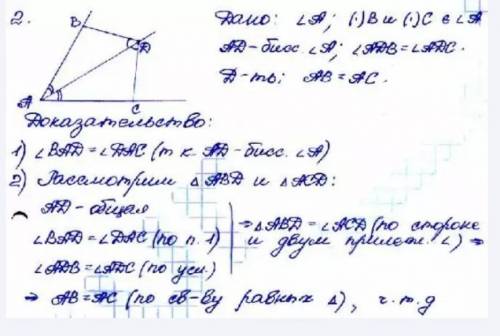 2.
B
D
A
C
Дано: ∠A; (·)B и (·)C ∈ ∠A
AD-бисс. ∠A; ∠ADB = ∠ADC.
Д-ть: AB = AC.
Доказательство:
1) ∠BAD = ∠DAC (т к AD-бисс. ∠A)
2) Рассмотрим △ABD и △ACD:
AD-общая
∠BAD = ∠DAC (по п. 1)
∠ADB = ∠ADC (по усл.)
⇒ △ABD = △ACD (по стороне
и двум прилеж. ∠) ⇒
⇒ AB = AC (по св-ву равных △), ч.т.д